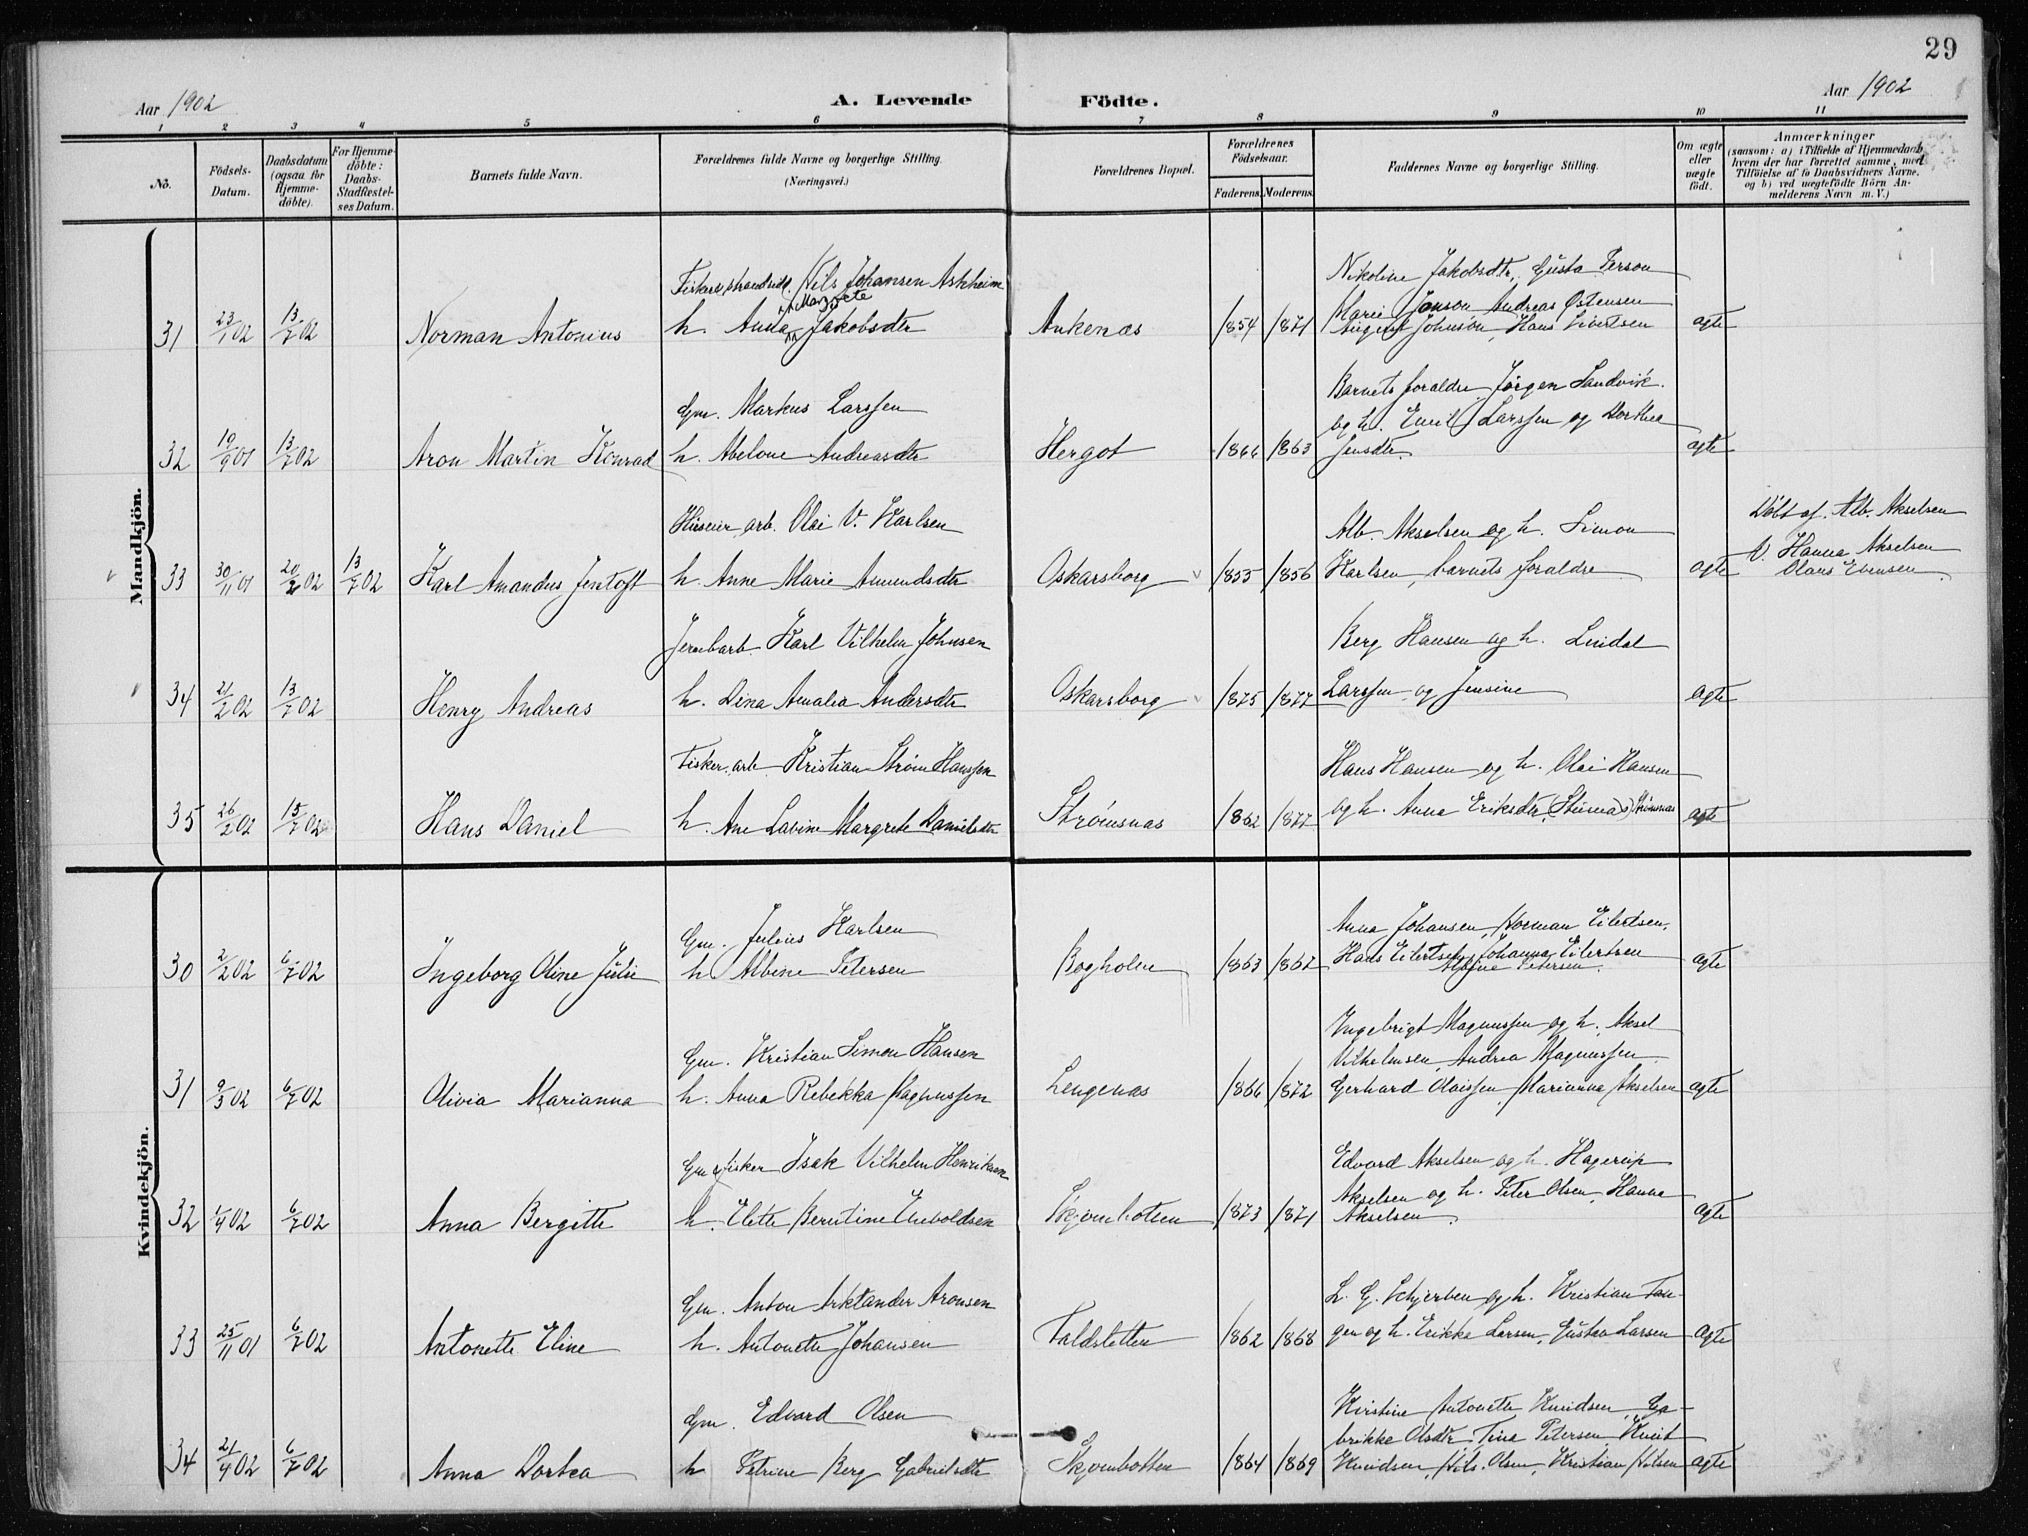 29
Aar 1902
A. Levende
Födte.
Aar 1902
1 2 3 4 5 6 7 8 9 10 11
No.
Födsels-Datum.
Daabsdatum (ogsaa for Hjemme-döbte).
For Hjemme-döbte: Daabs-Stadfæstel-ses Datum.
Barnets fulde Navn.
Forældrenes fulde Navne og borgerlige Stilling.
(Næringsvei.)
Forældrenes Bopæl.
Forældrenes Födselsaar.
Faderens.
Moderens.
Faddernes Navn og borgerlige Stilling.
Om ægte eller uægte födt.
Anmærkninger
(saasom: a) i Tilfælde af Hjemmedaab,
hvem der har forrettet samme, med
Tilföielse af to Daabsvidners Navne,
og b) ved uægtefödte Börn An-
melderens Navn m. V.)
Mandkjön.
31 23/1 02 13/7 02 Norman Antonius
Nils Johansen Askheim
h. Anna Margrete Jakobsdtr
Ankenæs 1854 1871
Nikoline Jakobsdtr, Gusta Person
Marie Jonson Andreas Östensen
August Johnson, Hans Sivertsen
ægte
32 10/9 01 13/7 02 Aron Martin Konrad
Gm. Markus Larssen
h. Abelone Andreasdtr
Hergot 1866 1863
Barnets forældre, Jørgen Sandvik
og h. Emil Larssen og Dorthea
Jensdtr.
ægte
33 30/11 01 20/2 02 13/7 02 Karl Amandus Jentoft
arb. Olai V. Karlsen
h. Anne Marie Amundsdtr
Oskarsborg 1853 1856
Alb. Akselsen og h. Simon
Karlsen, barnets forældre
ægte
Döbt af. Alb. Akselsen
V. Hanna Akselsen
Olaus Evensen
34 21/2 02 13/7 02 Henry Andreas
Jernbarb. Karl Vilhelm Johnsen
h. Dina Amalia Andersdtr
Oskarsborg 1875 1877
Berg Hansen og h. Lindal
Larssen og Jensine
ægte
35 26/2 02 15/7 02 Hans Daniel
Fisker. arb. Kristian Strøm Hanssen
h. Ane Lavine Margrete Danielsdtr
Strømsnæs 1862 1877
Hans Hansen og h. Olai Hansen
og h. Anna Eriksdtr, Strømsnæs
ægte
Kvindekjön.
30 2/2 02 6/7 02 Ingeborg Oline Julie
Gm. Julius Karlsen
h Albine Petersen
Bogholm 1863 1862
Anna Johansen, Norman Eilertsen,
Hans Eilertsen, Johanna Eilertsen
Albine Petersen.
ægte
31 9/3 02 6/7 02 Olivia Marianna
Gm. Kristian Simon Hansen
h. Anna Rebekka Magnussen
Lengenæs 1866 1872
Ingebrigt Magnussen og h. Aksel
Vilhelmsen, Andrea Magnussen
Gerhard Olaissen, Marianna Akselsen
ægte
32 1/4 02 6/7 02 Anna Bergitte
Gm fisker Isak Vilhelm Henriksen
h. Elette Berntine Eneboldsen
Skjombotten 1873 1871
Edvard Akselsen og h. Hagerup
Akselsen og h. Peter Olsen, Hanna
Akselsen.
ægte
33 25/11 01 6/7 02 Antonette Eline
Gm. Anton Arktander Aronsen
h. Antonette Johansen
Foldsletten 1862 1868
L. G. Schjerben og h. Kristian Tan-
gen og h. Erikke Larsen, Gustava Larsen
ægte
34 21/4 02 6/7 02 Anna Dortea
Gm. Edvard Olsen
h Petrine Berg Gabrielsdtr
Skjombotten 1864 1869
Kirstine Antonette Knudsen, Ga-
brikke Olsdtr Tina Petersen Knut
Knudsen, Nils Olsen, Kristian Nilsen
ægte